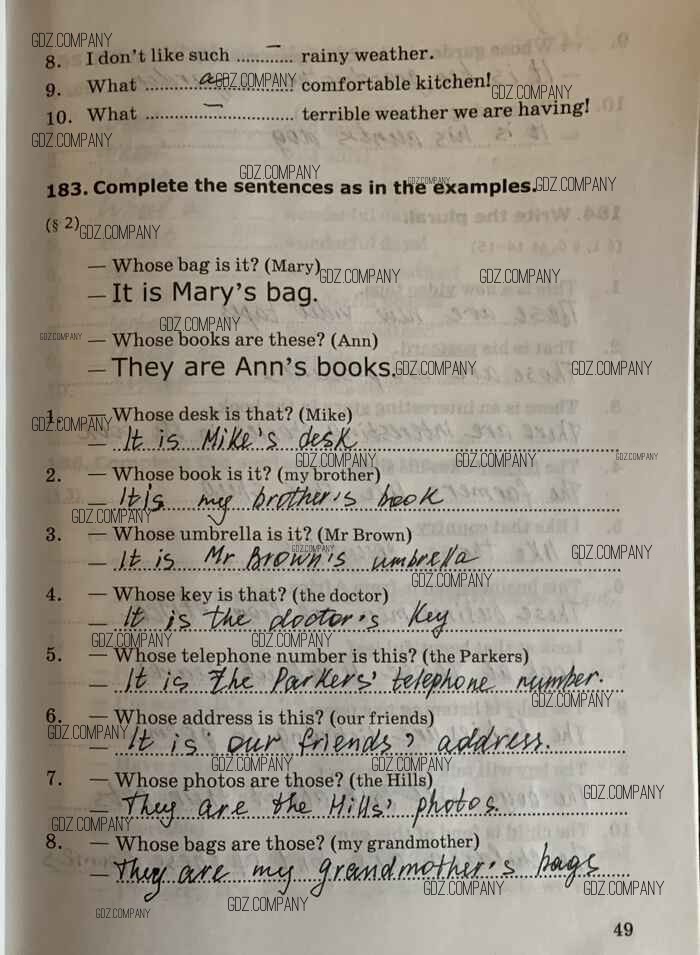 GDZ.COMPANY
8. I don't like such ............ — rainy weather.
9. What .......... a .......... comfortable kitchen!
GDZ.COMPANY GDZ.COMPANY
10. What .......... — .......... terrible weather we are having!
GDZ.COMPANY
GDZ.COMPANY
183. Complete the sentences as in the examples. GDZ.COMPANY GDZ.COMPANY
(§ 2) GDZ.COMPANY
— Whose bag is it? (Mary) GDZ.COMPANY GDZ.COMPANY
— It is Mary's bag.
GDZ.COMPANY
GDZ.COMPANY — Whose books are these? (Ann)
— They are Ann's books. GDZ.COMPANY GDZ.COMPANY
1. — Whose desk is that? (Mike)
GDZ.COMPANY
— It is Mike's desk
GDZ.COMPANY GDZ.COMPANY GDZ.COMPANY
2. — Whose book is it? (my brother)
— It is my brother's book
GDZ.COMPANY
3. — Whose umbrella is it? (Mr Brown)
GDZ.COMPANY GDZ.COMPANY
— It is Mr Brown's umbrella
GDZ.COMPANY
4. — Whose key is that? (the doctor)
— It is the doctor's key
GDZ.COMPANY GDZ.COMPANY
5. — Whose telephone number is this? (the Parkers)
— It is the Parkers' telephone number.
GDZ.COMPANY
6. — Whose address is this? (our friends)
GDZ.COMPANY
— It is our friends' address.
GDZ.COMPANY GDZ.COMPANY
7. — Whose photos are those? (the Hills)
GDZ.COMPANY
— They are the Hills' photos.
GDZ.COMPANY
8. — Whose bags are those? (my grandmother)
— They are my grandmother's bags
GDZ.COMPANY GDZ.COMPANY
GDZ.COMPANY GDZ.COMPANY
49